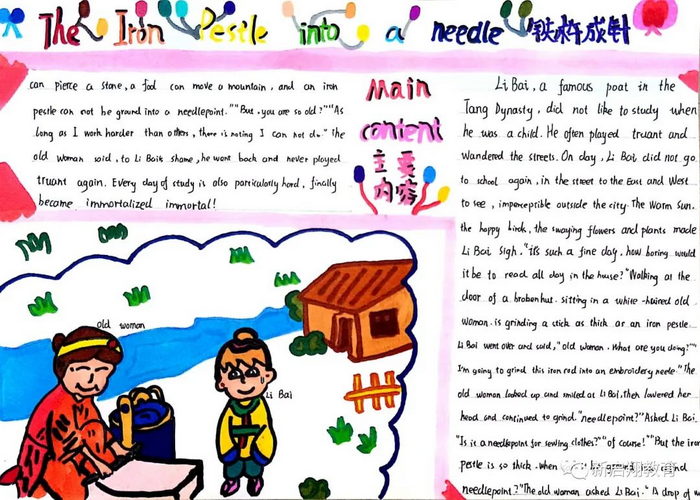 The Iron Pestle into a needle 铁杵成针
can pierce a stone, a fool can move a mountain, and an iron
pestle can not be ground into a needlepoint." "But, you are so old?" "As
long as I work harder than others, there is noting I can not do." The
old woman said, to Li Bai's shame, he went back and never played
truant again. Every day of study is also particularly hard, finally
became immortalized immortal!
Main
content
主要
内容
Li Bai, a famous poat in the
Tang Dynasty, did not like to study when
he was a child. He often played truant and
wandered the streets. On day, Li Bai did not go
to school again, in the street to the East and West
to see, imperceptible outside the city. The warm sun,
the happy birds, the swaying flowers and plants made
Li Bai sigh, "it's such a fine day, how boring would
it be to read all day in the house?" Walking at the
door of a broken hut. sitting in a white-haired old
woman. is grinding a stick as thick as an iron pestle.
Li Bai went over and said, "old woman. What are you doing?" "
I'm going to grind this iron rod into an embroidery neele." The
old woman looked up and smiled at Li Bai, then lowered her
head and continued to grind. "needlepoint?" Asked Li Bai
"Is is a needlepoint for sewing clothes?" "of course!" "But the iron
pestle is so thick. When
needlepoint?" The old woman asked Li Bai. "A drop of w
old woman
Li Bai
新启翔教育